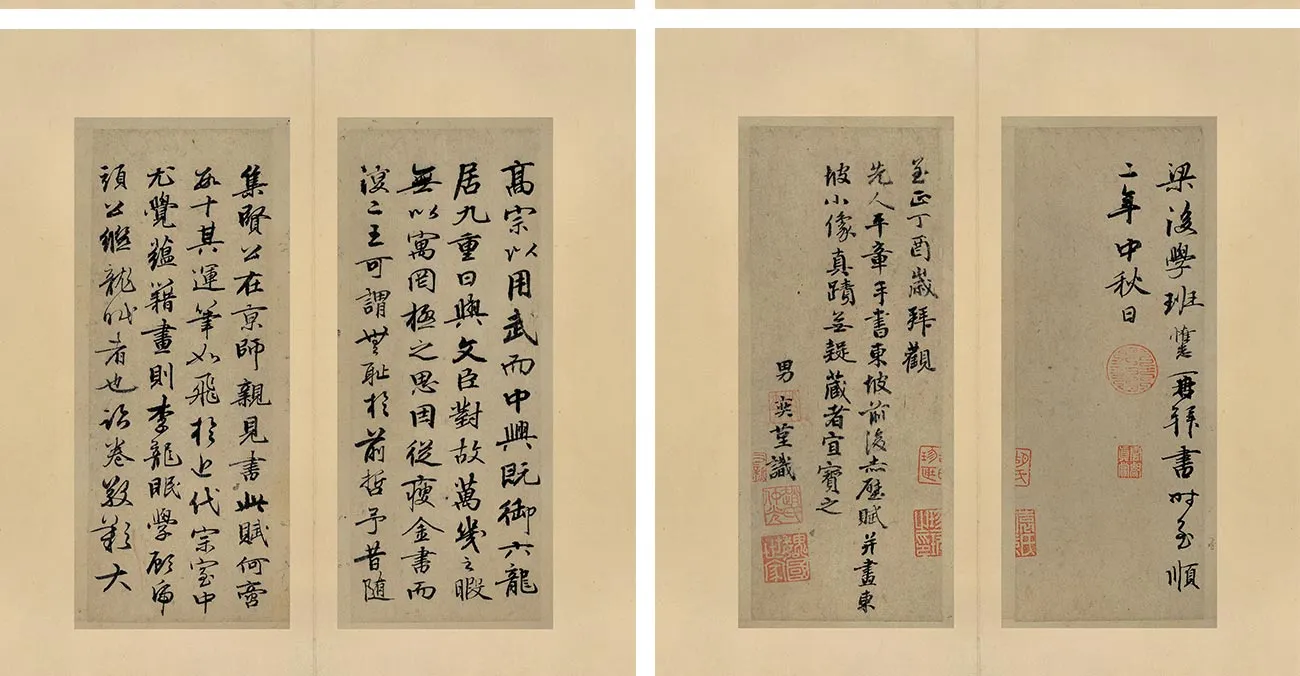 高宗以用武而中興既御六龍
居九重日與文臣對故萬幾之暇
無以寓罔極之思因從瘦金書而
復二王可謂無恥於前哲予昔隨
集賢公在京師親見書此賦何啻
數十其運筆如飛於近代宗室中
尤覺蘊藉畫則李龍眠學顧虎
頭公繼龍眠者也詠卷敬歎大
梁後學班惟志再拜書時至順
二年中秋日
至正丁酉歲拜觀
先人平章手書東坡前後赤壁賦并畫東
坡小像真蹟無疑藏者宜寶之
男奕堇識
趙氏仲光
魏國世家